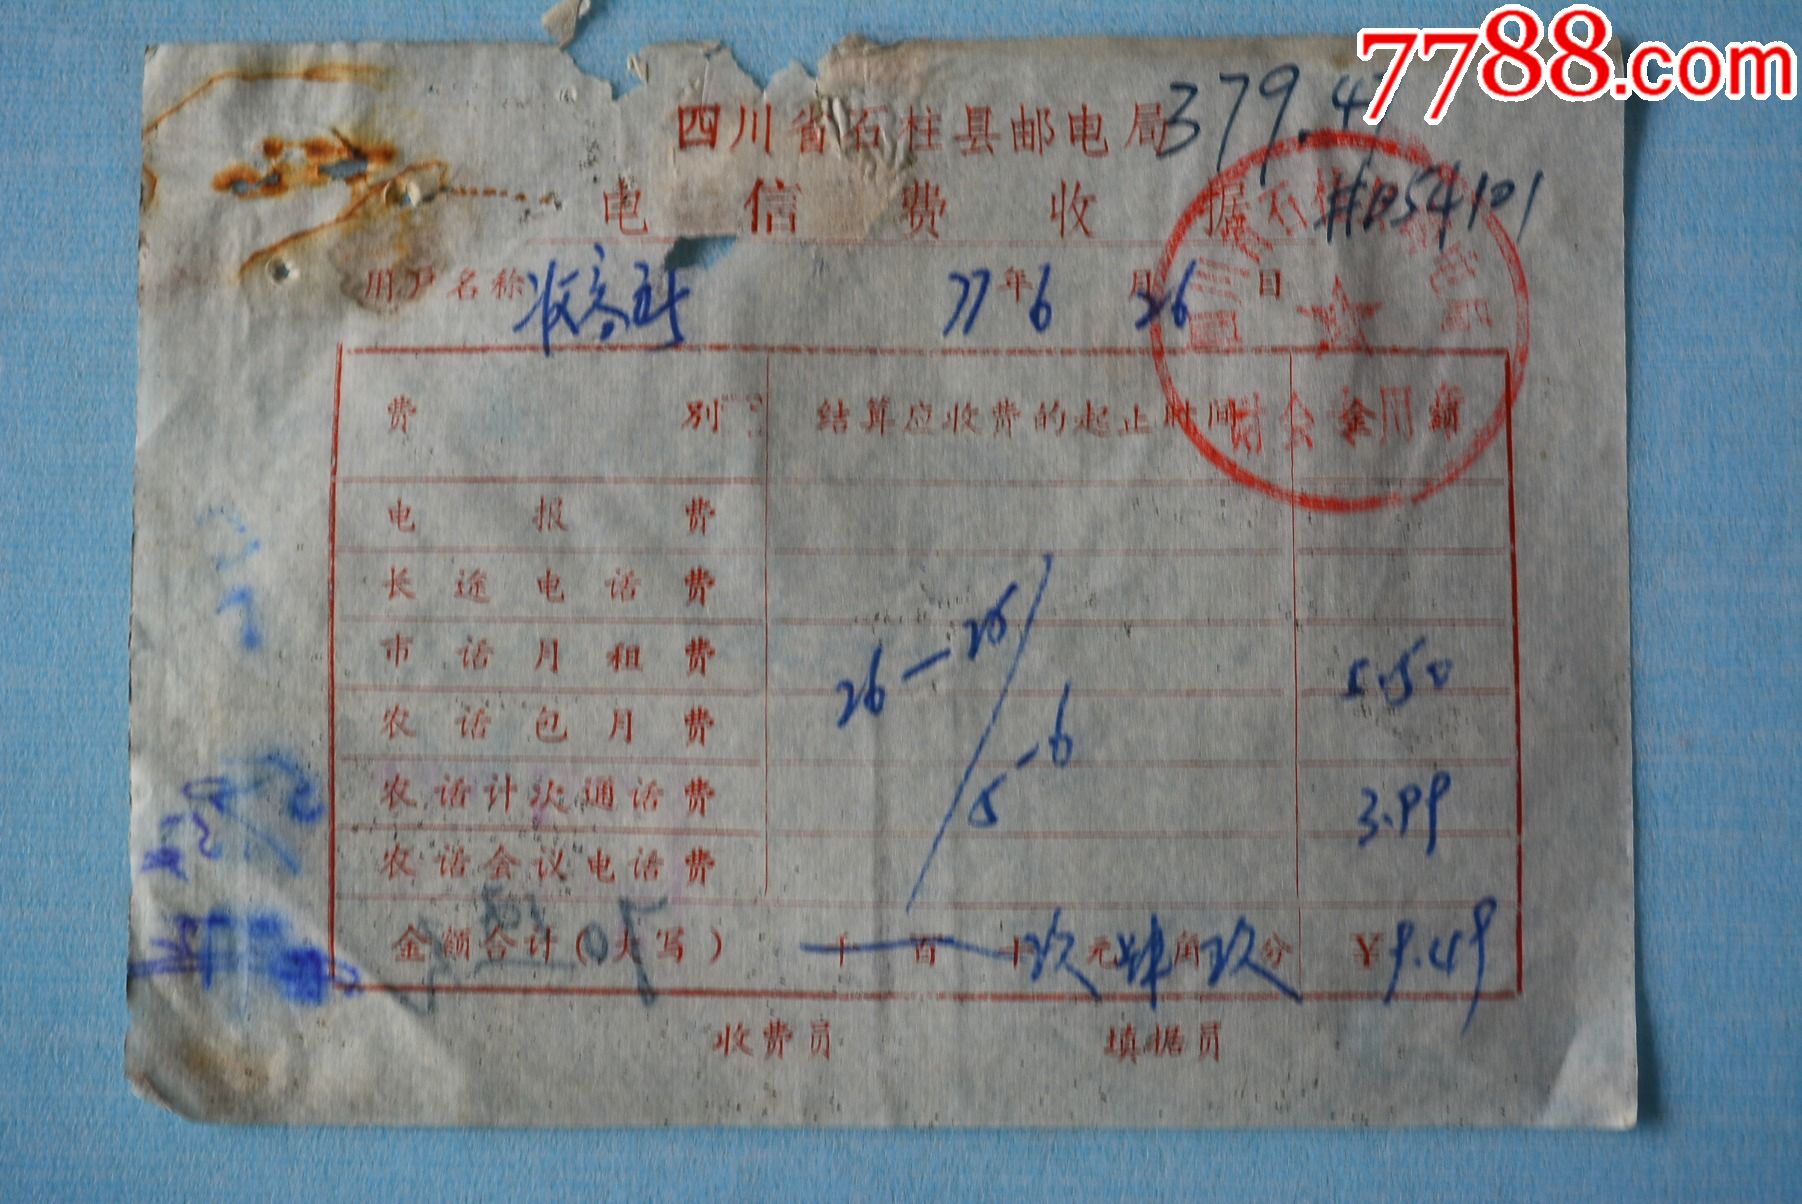 7788.com
四川省石柱县邮电局 379.47
电信费收据 #054101
用户名称 收容所 77年6月26日
费别 结算应收费的起止时间 金额
电报费
长途电话费
市话月租费 26—25 5.50
农话包月费
农话计次通话费 5-6 3.99
农话会议电话费
金额合计(大写) 千百十玖元肆角玖分 ¥9.49
收费员 填据员
财会专用